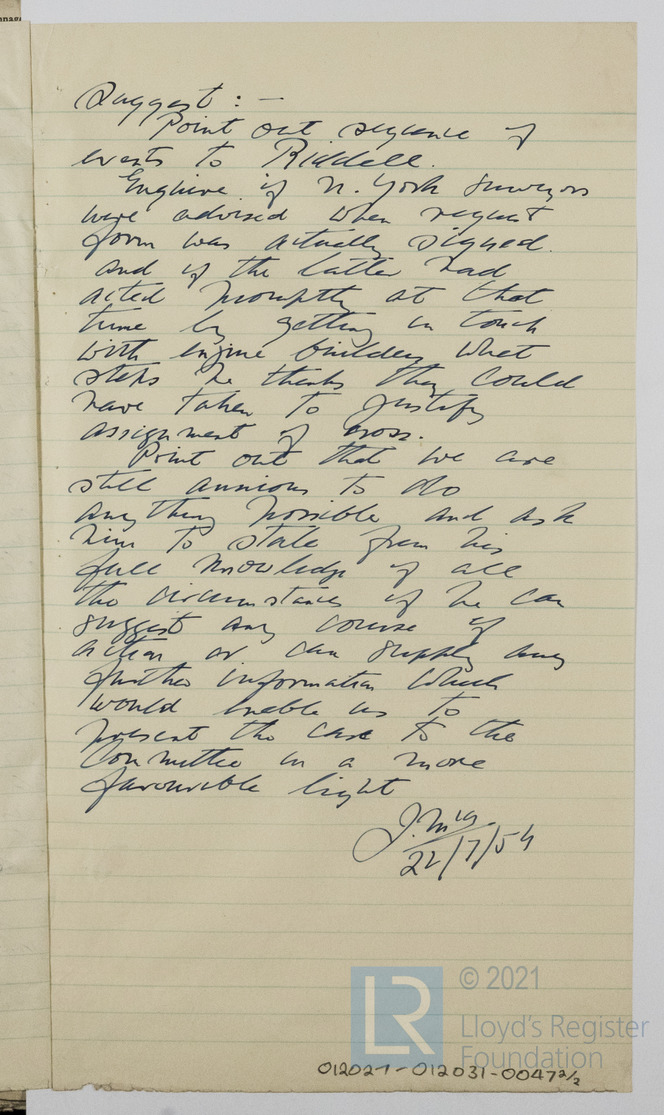 Suggest :-
Point out sequence of
events to Riddell.
Enquire if N. York Surveyors
were advised when request
form was actually signed
and if the latter had
acted promptly at that
time by getting in touch
with engine builders what
steps he thinks they could
have taken to justify
assignment of cross.
Point out that we are
still anxious to do
anything possible and ask
him to state from his
full knowledge of all
the circumstances if he can
suggest any course of
action or can supply any
further information which
would enable us to
present the case to the
Committee in a more
favourable light
22/7/54
© 2021
LR
Lloyd's Register
Foundation
012027-012031-0047 2/2